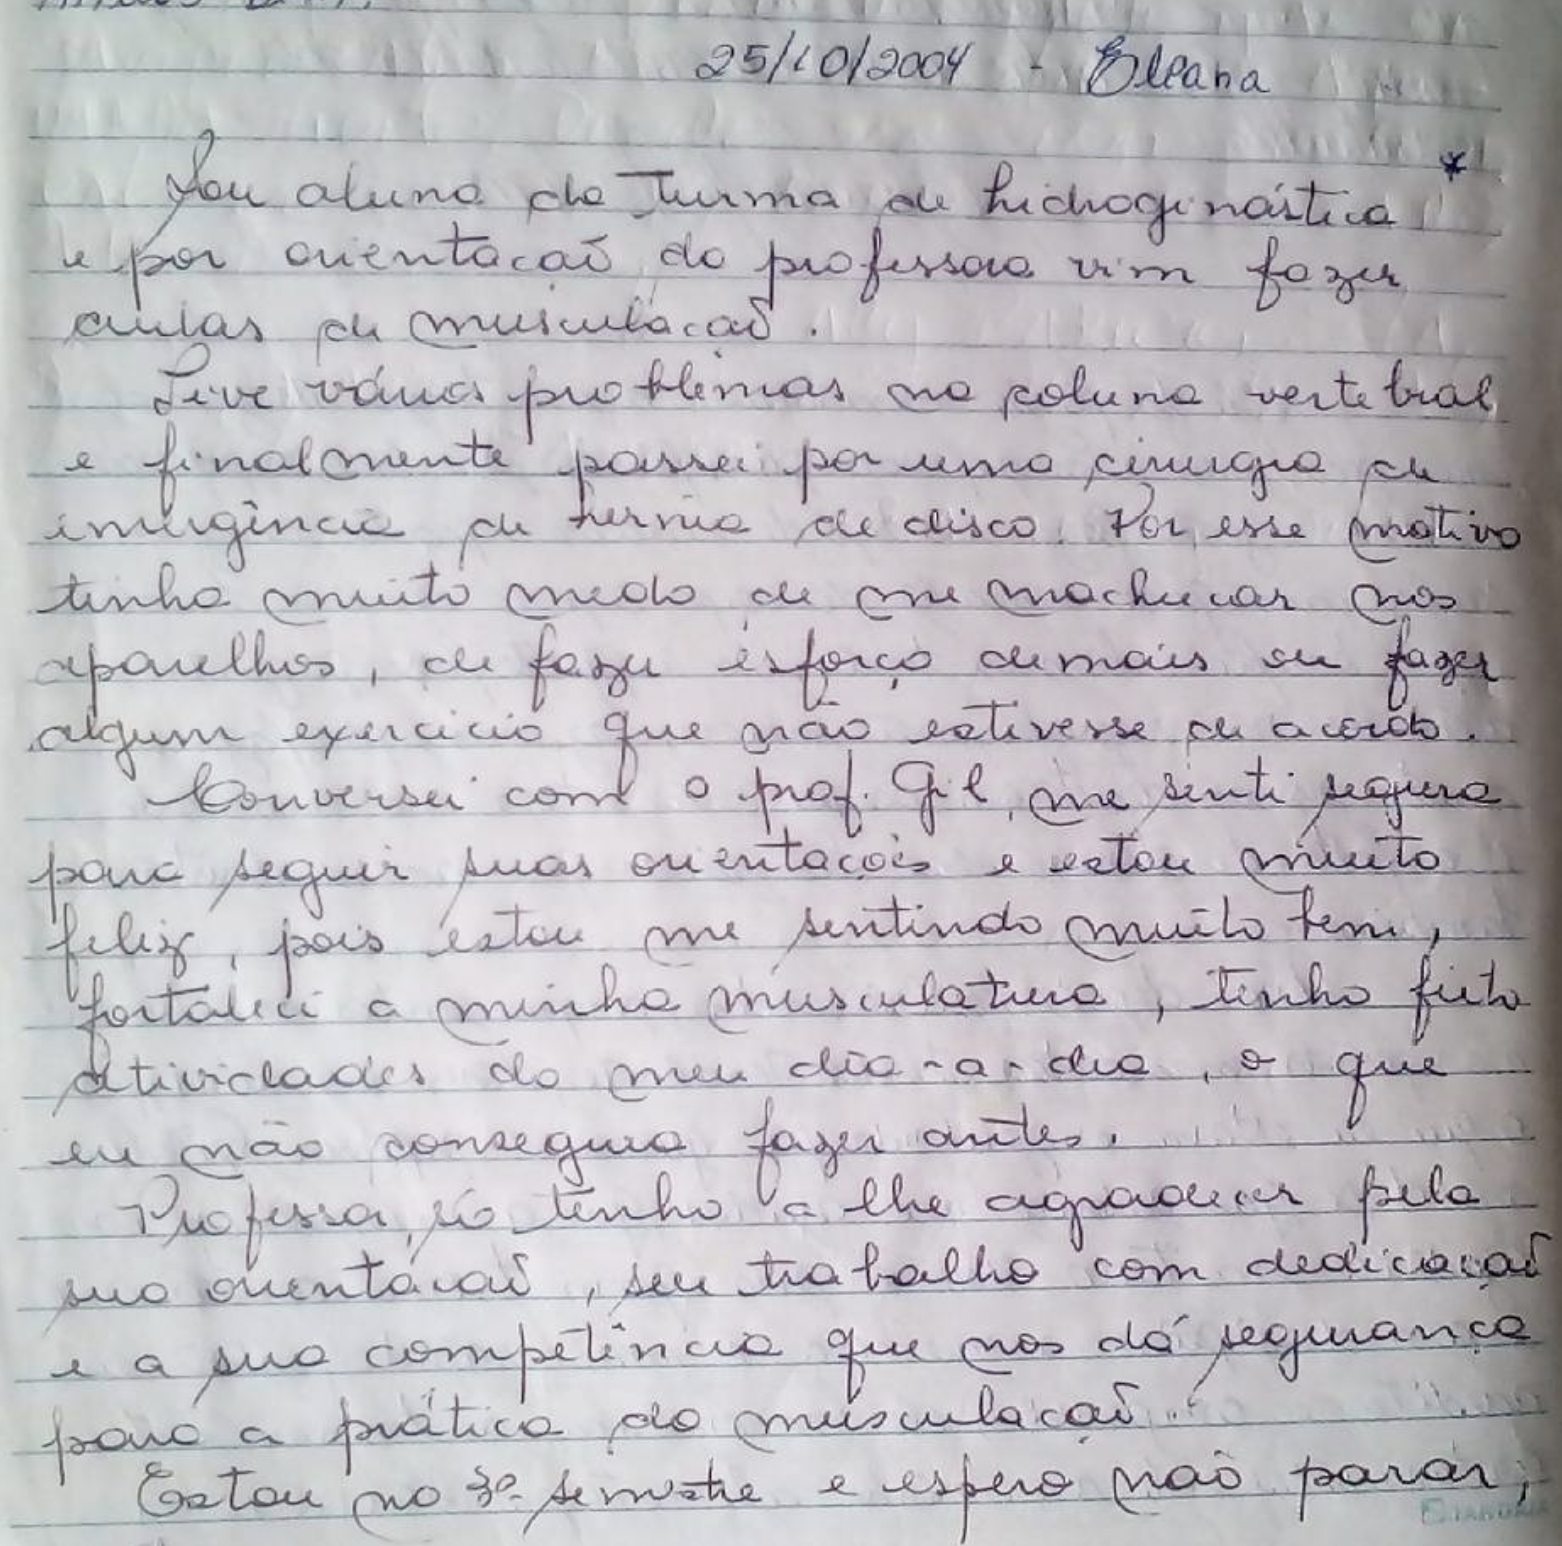 25/10/2004 - Eleana
*
Sou aluna da Turma de hidroginástica
e por orientação da professora vim fazer
aulas de musculação.
Tive vários problemas na coluna vertebral
e finalmente passei por uma cirurgia de
emergência de hernia de disco. Por esse motivo
tinha muito medo de me machucar nos
aparelhos, de fazer esforço demais ou fazer
algum exercicio que não estivesse de acordo.
Conversei com o prof. Gil, me senti segura
para seguir suas orientações e estou muito
feliz, pois estou me sentindo muito bem,
fortaleci a minha musculatura, tenho feito
atividades do meu dia-a-dia, o que
eu não conseguia fazer antes.
Professor, só tenho a lhe agradecer pela
sua orientação, seu trabalho com dedicação
e a sua competência que nos dá segurança
para a prática da musculação.
Estou no 3º semestre e espero não parar,